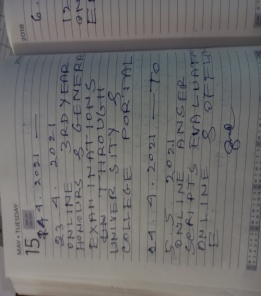 2018
MAY • TUESDAY
15
19.4.2021 —
23.4.2021
ONLINE 3RD YEAR
HONOURS & GENERAL
EXAMINATIONS
ON THROUGH
UNIVERSITY &
COLLEGE PORTAL
5.5.2021
ONLINE ANSER
SCRIPTS EVALUATI
ONLINE &
E